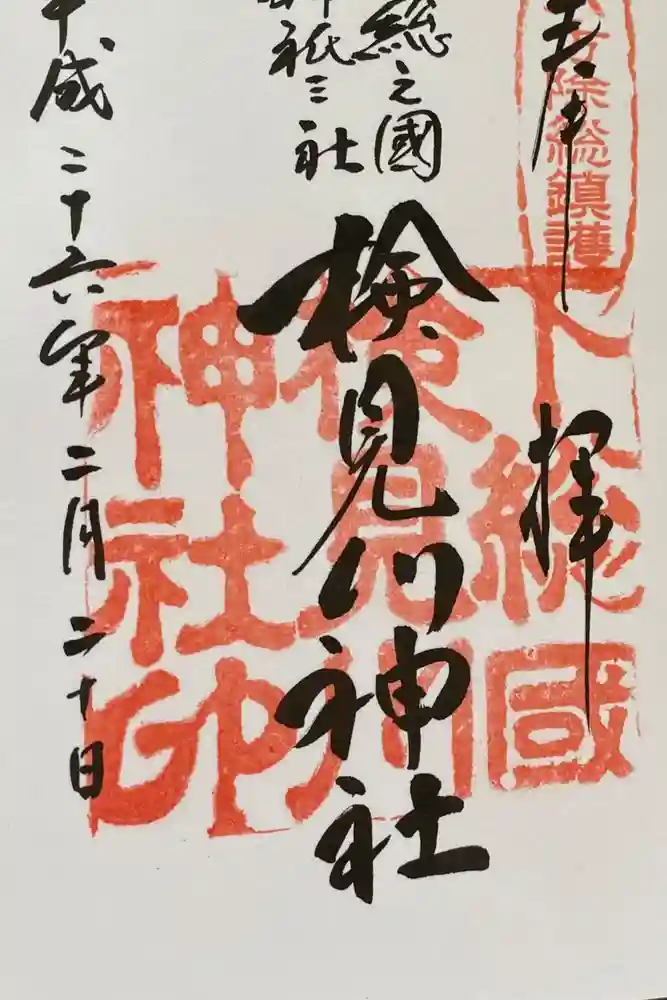 奉拝
方除総鎮護
下総國
検見川
神社印
総之國
神祇三社
検見川神社
平成二十六年二月二十日